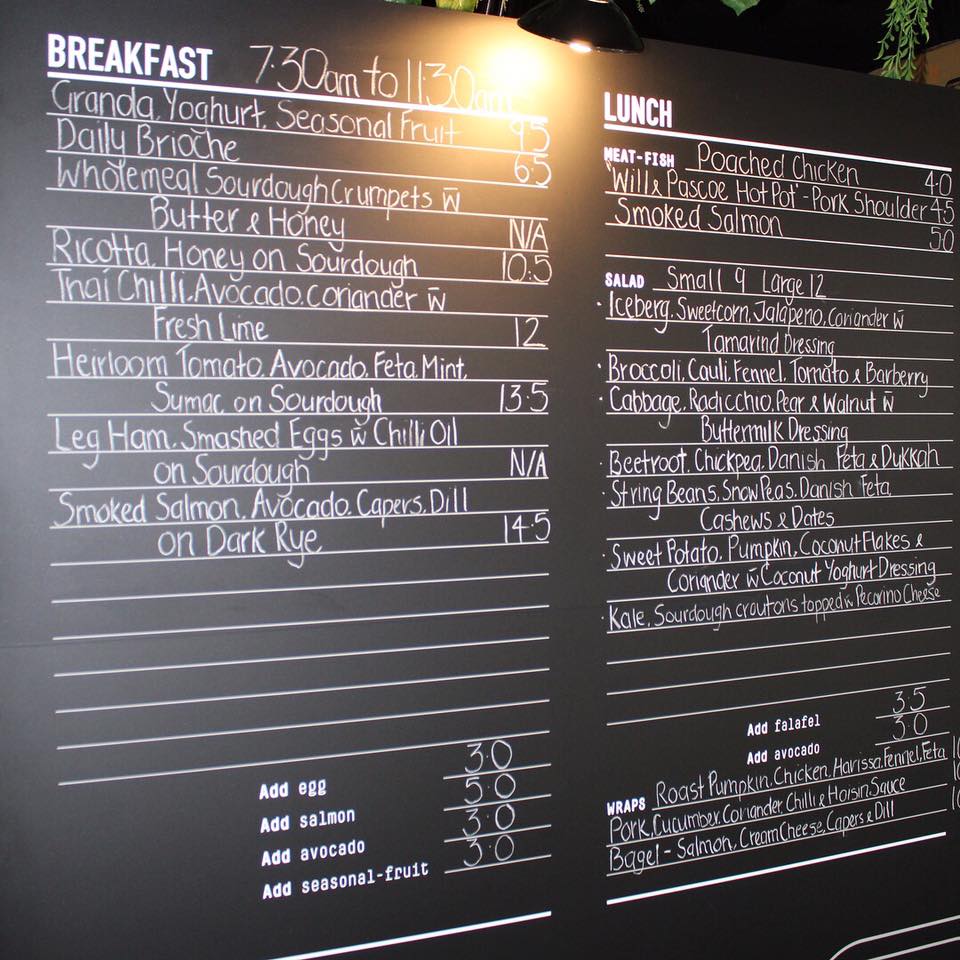 BREAKFAST 7.30am to 11.30am
Granola, Yoghurt, Seasonal Fruit 9.5
Daily Brioche 6.5
Wholemeal Sourdough Crumpets w̄
Butter & Honey N/A
Ricotta, Honey on Sourdough 10.5
Thai Chilli, Avocado, Coriander w̄
Fresh Lime 12
Heirloom Tomato, Avocado, Feta, Mint,
Sumac on Sourdough 13.5
Leg Ham, Smashed Eggs w̄ Chilli Oil
on Sourdough N/A
Smoked Salmon, Avocado, Capers, Dill
on Dark Rye 14.5
Add egg 3.0
Add salmon 5.0
Add avocado 3.0
Add seasonal-fruit 3.0
LUNCH
MEAT-FISH Poached Chicken 4.0
"Will & Pascoe Hot Pot" - Pork Shoulder 4.5
Smoked Salmon 5.0
SALAD Small 9 Large 12
· Iceberg, Sweetcorn, Jalapeno, Coriander w̄
Tamarind Dressing
· Broccoli, Cauli, Fennel, Tomato & Barberry
· Cabbage, Radicchio, Pear & Walnut w̄
Buttermilk Dressing
· Beetroot, Chickpea, Danish Feta & Dukkah
· String Beans, Snow Peas, Danish Feta,
Cashews & Dates
· Sweet Potato, Pumpkin, Coconut Flakes &
Coriander w̄ Coconut Yoghurt Dressing
· Kale, Sourdough croutons topped w̄ Pecorino Cheese
Add falafel 3.5
Add avocado 3.0
WRAPS Roast Pumpkin, Chicken, Harissa, Fennel, Feta
Pork, Cucumber, Coriander, Chilli & Hoisin Sauce
Bagel - Salmon, Cream Cheese, Capers & Dill